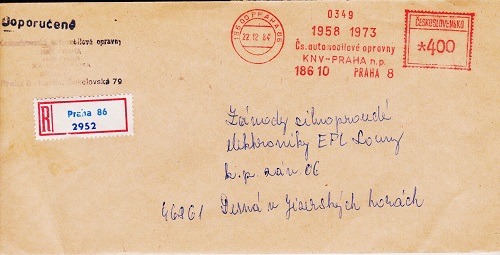 Doporučeně
Sokolovská 79
R
Praha 86
2952
186 00 PRAHA 86
22.12.84
0349
1958 1973
Čs. automobilové opravny
KNV-PRAHA n.p.
186 10 PRAHA 8
ČESKOSLOVENSKO
*400
Závody silnoproudé
elektroniky EPL Louny
k.p. záv. 06
46861 Desná v Jizerských horách